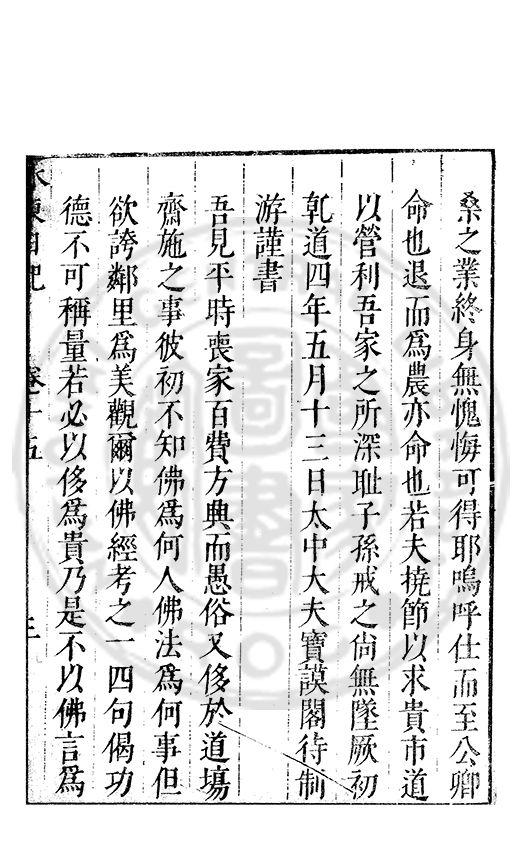 桑之業終身無愧悔可得耶嗚呼仕而至公卿
命也退而爲農亦命也若夫撓節以求貴市道
以營利吾家之所深耻子孫戒之尚無墜厥初
乹道四年五月十三日太中大夫寶謨閣待制
游謹書
吾見平時喪家百費方興而愚俗又侈於道塲
齋施之事彼初不知佛爲何人佛法爲何事但
欲誇鄰里爲美觀爾以佛經考之一四句偈功
德不可稱量若必以侈爲貴乃是不以佛言爲
水東日記 卷十五 三